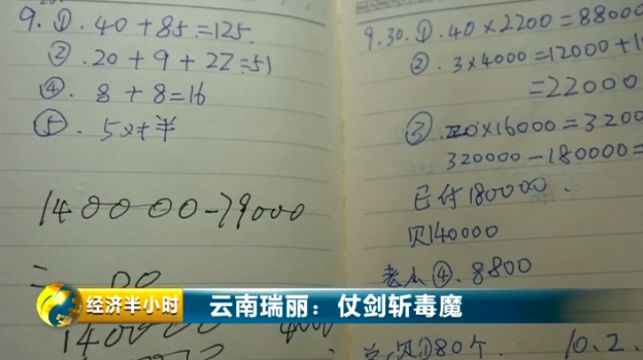 9. ①. 40+85=125.
②. 20+9+22=51
④. 8+8=16
⑤. 5对半
140000-79000
=
140000
9.30. ①. 40×2200=8800
②. 3×4000=12000+1
=22000
③. 20×16000=3200
320000-180000=
已付180000.
欠140000
老小④. 8800
①80个. 10.2.
经济半小时
云南瑞丽：仗剑斩毒魔